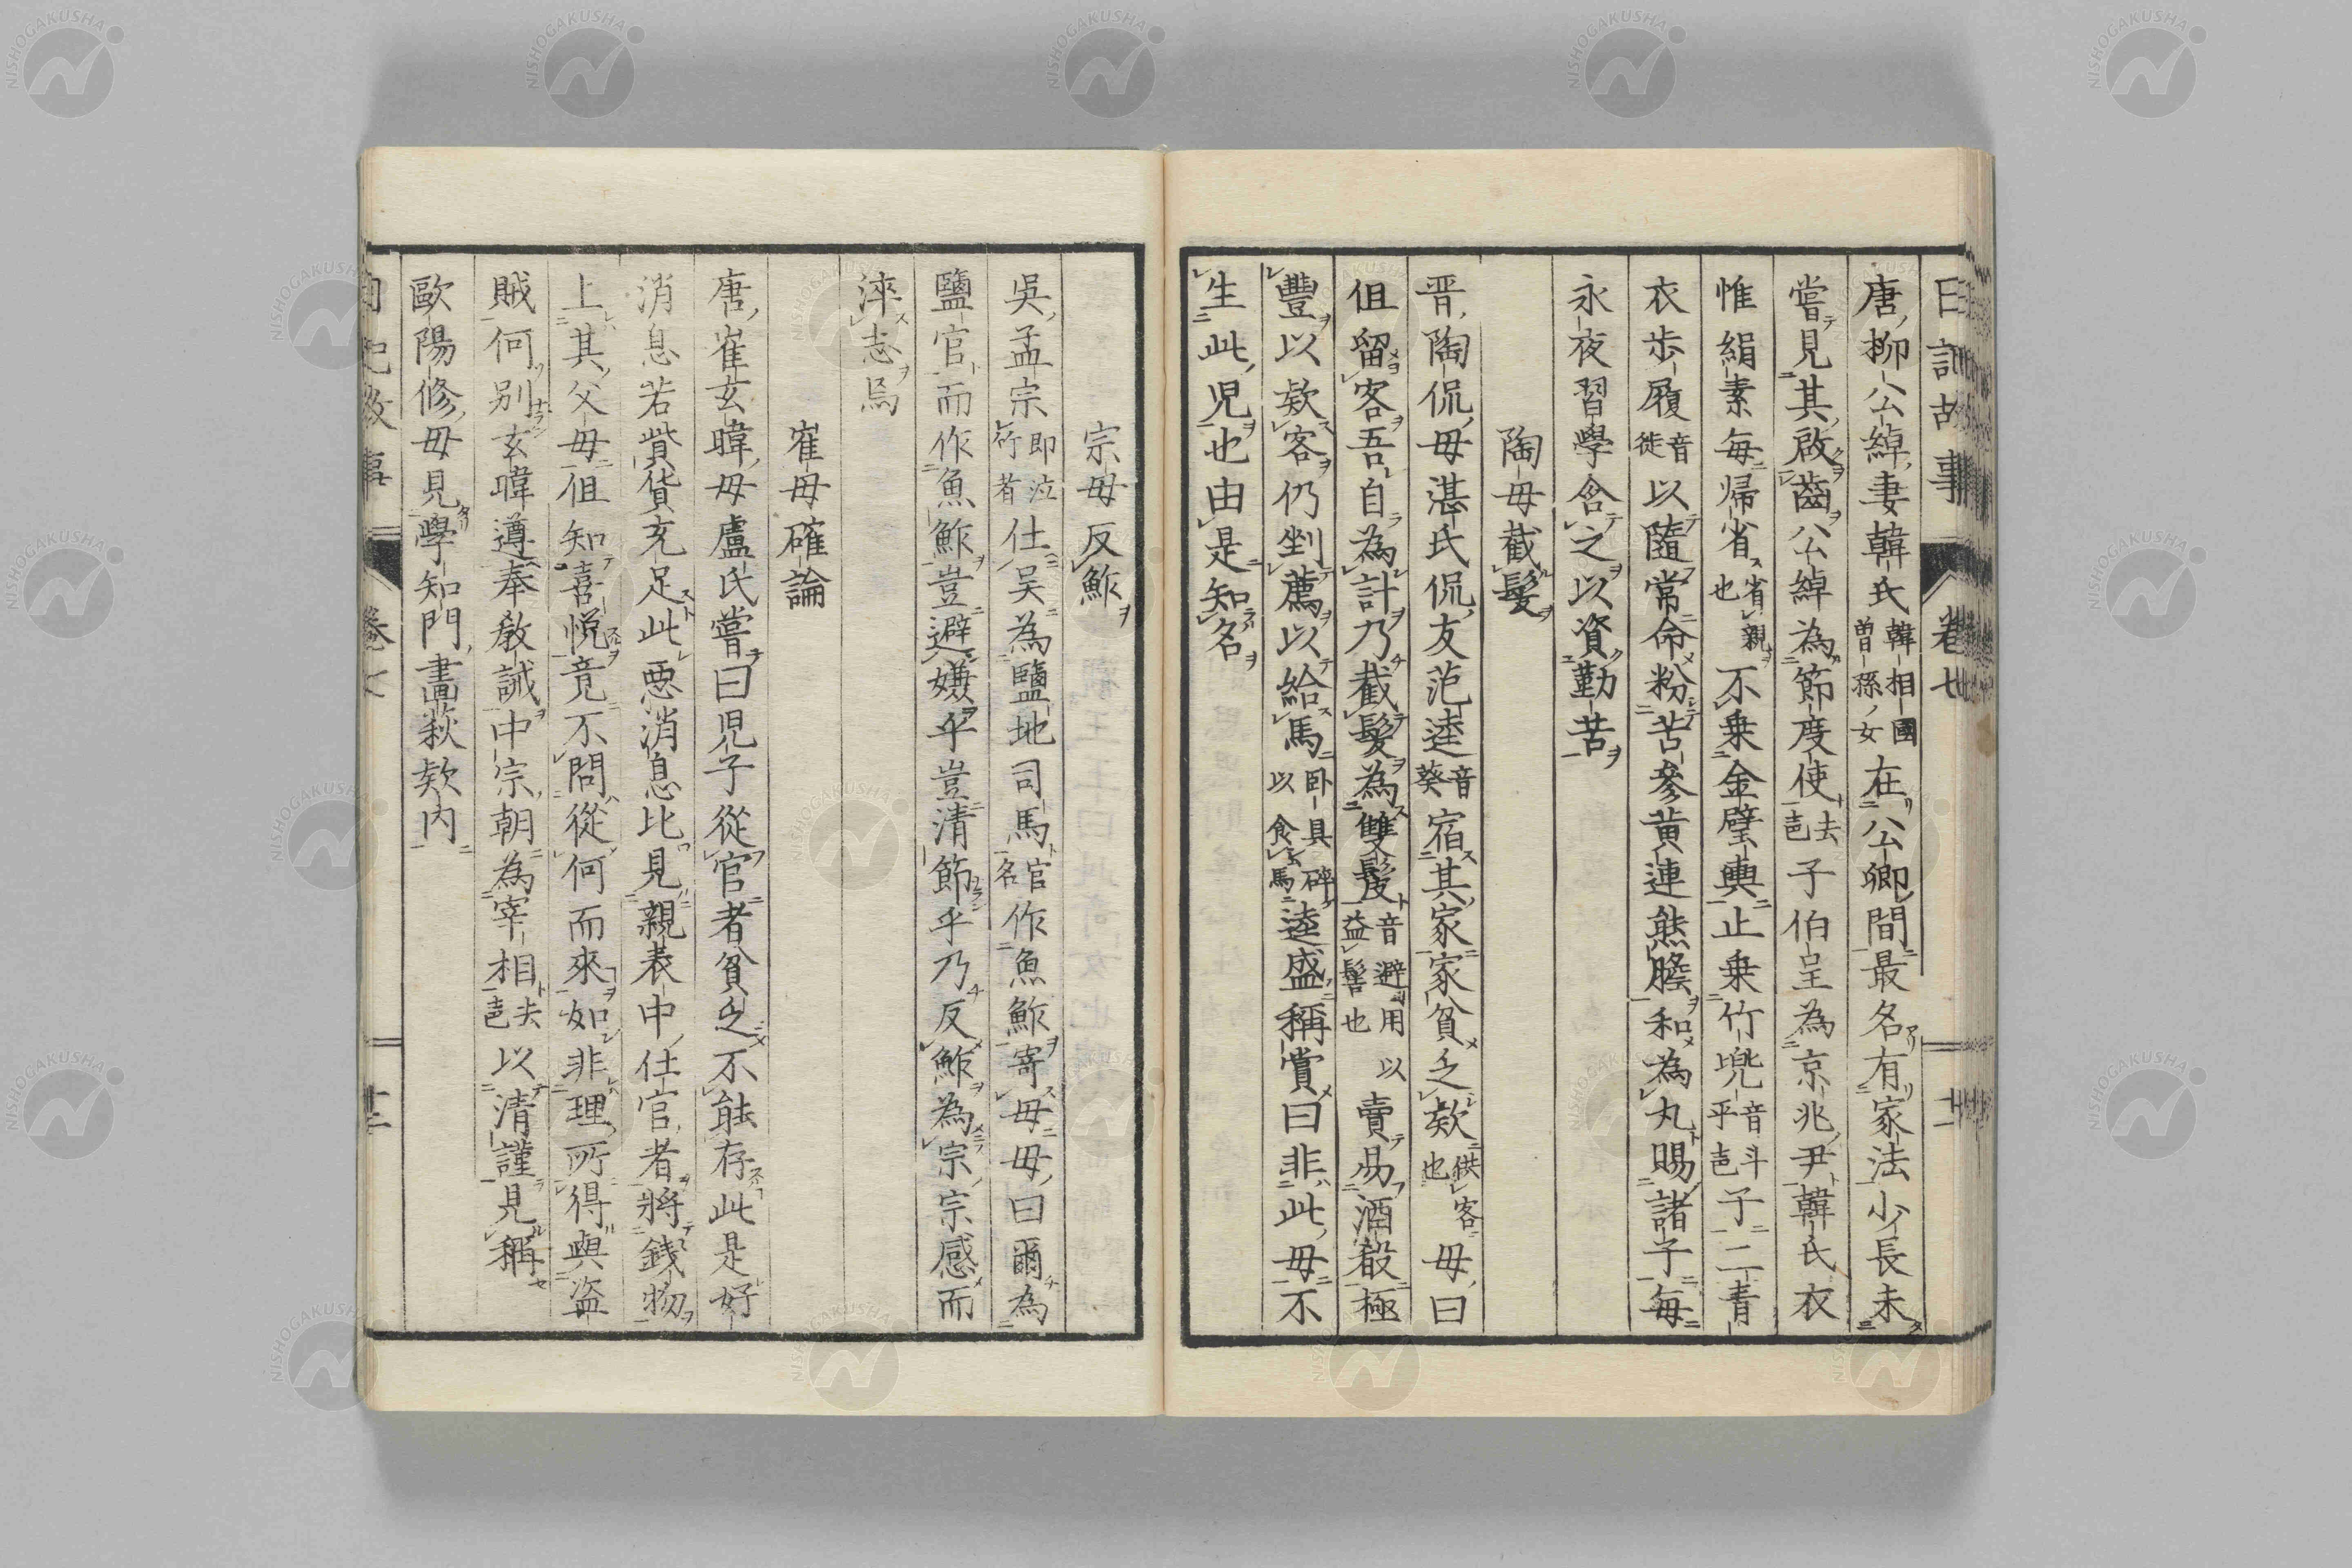 日記故事 卷七
唐柳公綽妻韓氏韓相國曽孫女在公卿間最名有家法小長未
嘗見其啟齒公綽為節度使去声子伯呈為京兆尹韓氏衣
惟絹素每帰省省親也不乗金璧輿止乗竹兜音斗平声子二青
衣歩履音徙以隨常命粉苦參黄連熊膽和為丸賜諸子每
永夜習學含之以資勤苦
陶母截髮
晋陶侃母湛氏侃友范逵音葵宿其家家貧乏欵供客也母曰
伹留客吾自為計乃截髮為雙髲音避用以益髻也賣易酒殽極
豐以欵客仍剉薦以給馬卧具碎以食馬逵盛稱賞曰非此母不
生此児也由是知名
宗母反鮓
吳孟宗即泣竹者仕吴為鹽地司馬官名作魚鮓寄母母曰爾為
鹽官而作魚鮓豈避嫌乎豈清節乎乃反鮓為宗宗感而
淬志焉
崔母確論
唐崔玄暐母盧氏嘗曰児子從官者貧乏不能存此是好
消息若貲貨充足此悪消息比見親表中仕官者將錢物
上其父母伹知喜悦竟不問從何而來如非理所得與盗
賊何別玄暐遵奉敎誡中宗朝為宰相去声以清謹見稱
歐陽修母見學知門畫荻欵内
卷七